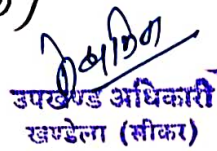 उपखण्ड अधिकारी
खण्डेला (सीकर)